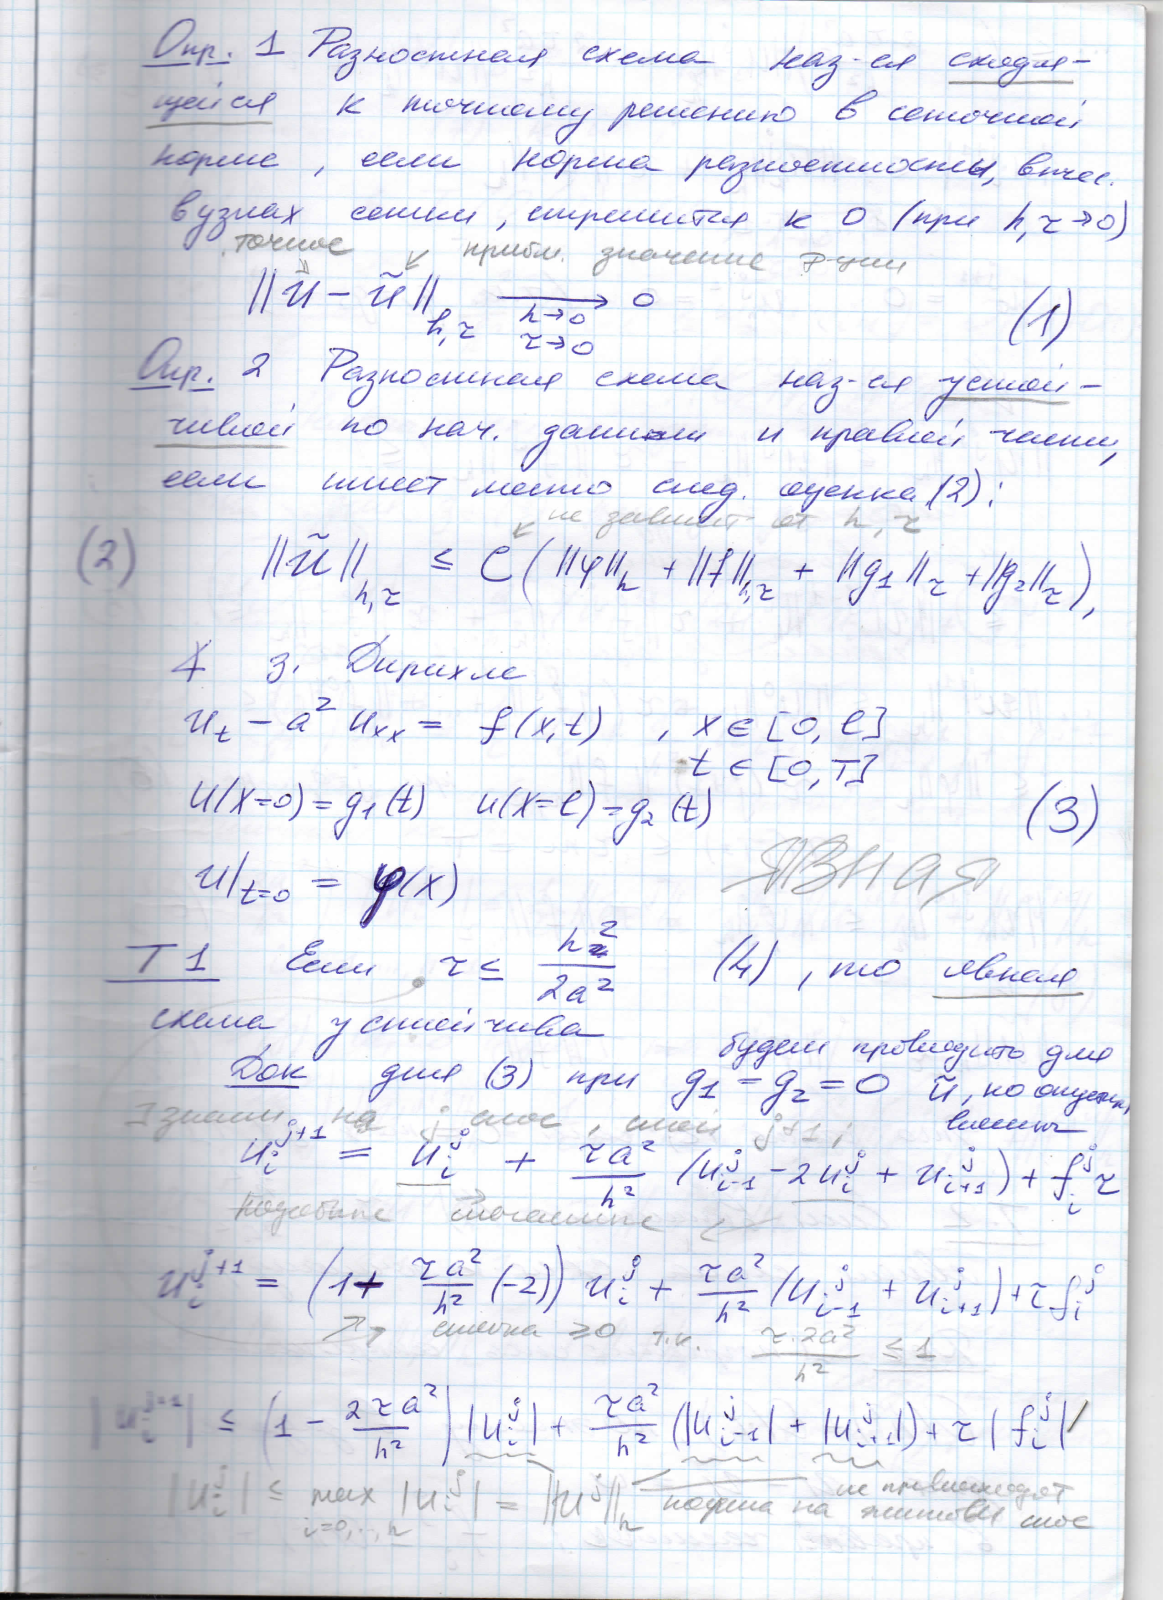 Опр. 1 Разностная схема наз-ся сходя-
щейся к точному решению в сеточной
норме, если норма разностности, вычис.
в узлах сетки, стремится к 0 (при h, τ → 0)
точное ↙ прибл. значение ф-ции
||u - ũ||_{h,τ} → 0 (h→0, τ→0) (1)
Опр. 2 Разностная схема наз-ся устой-
чивой по нач. данным и правой части,
если имеет место след. оценка (2):
не зависит от h, τ
(2) ||ũ||_{h,τ} ≤ C (||φ||_h + ||f||_{h,τ} + ||g₁||_τ + ||g₂||_τ),
з. Дирихле
u_t - a² u_{xx} = f(x,t), x ∈ [0, l]
t ∈ [0, T]
u(x=0) = g₁(t) u(x=l) = g₂(t) (3)
ЯВНАЯ
u|_{t=0} = φ(x)
Т 1 Если τ ≤ h²/2a² (4), то явная
схема устойчива
будем проводить для
Док для (3) при g₁ = g₂ = 0 ũ, но
знаем на j слое, j+1;
u_i^{j+1} = u_i^j + τa²/h² (u_{i-1}^j - 2u_i^j + u_{i+1}^j) + f_i^j τ
Подобные слагаемые
u_i^{j+1} = (1 + τa²/h² (-2)) u_i^j + τa²/h² (u_{i-1}^j + u_{i+1}^j) + τ f_i^j
скобка ≥ 0 т.к. τ·2a²/h² ≤ 1
|u_i^{j+1}| ≤ (1 - 2τa²/h²) |u_i^j| + τa²/h² (|u_{i-1}^j| + |u_{i+1}^j|) + τ |f_i^j|
не превосходят
|u_i^j| ≤ max_{i=0,..,n} |u_i^j| = ||u^j||_h норма на слое